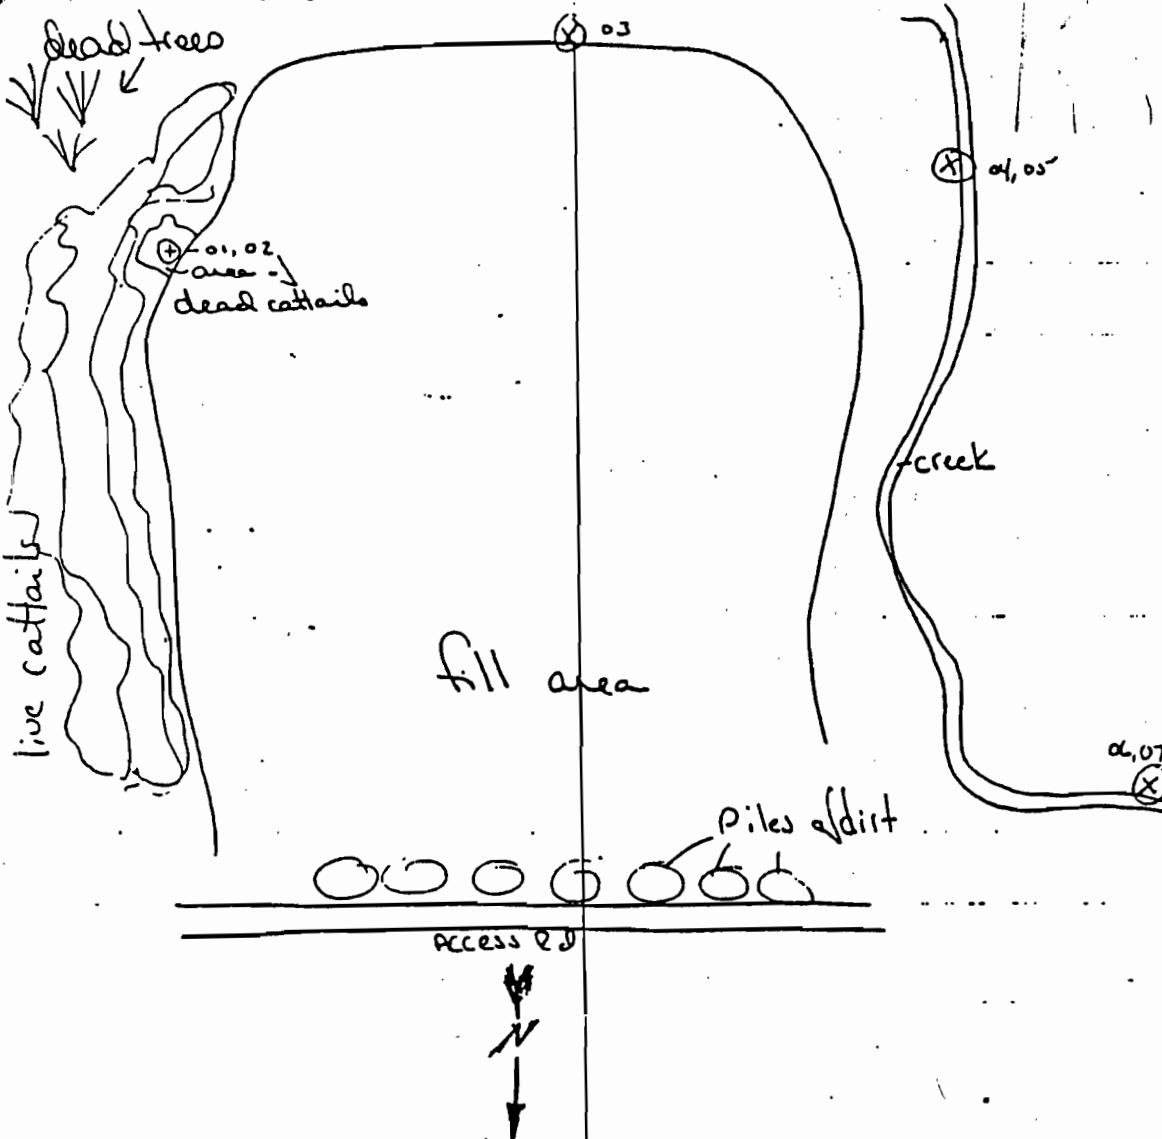 dead trees
03
04,05
01,02
area -
dead cattails
creek
live cattails
fill area
06,07
Piles of dirt
Access Rd
N